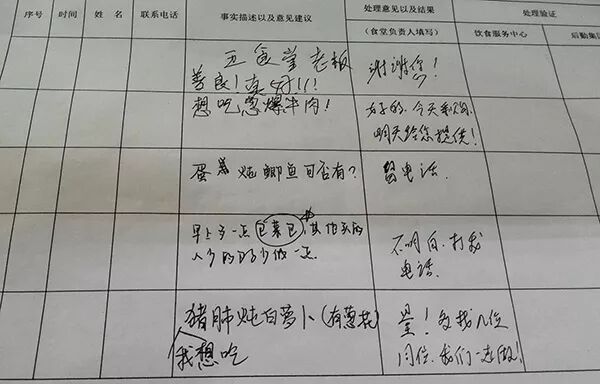 序号 时间 姓名 联系电话 事实描述以及意见建议 处理意见以及结果 处理验证
(食堂负责人填写) 饮食服务中心 后勤集
五食堂老板
善良!真好!!!
谢谢您!
想吃葱爆牛肉!
好的,今天采购,
明天给您提供!
蛋羹炖鲫鱼可否有?
留电话
早上多一点包菜包,其他买的
人少的可少做一点.
不明白,打我
电话.
猪肺炖白萝卜(有葱花)
我想吃
晕!多找几位
同位,我们一起做!